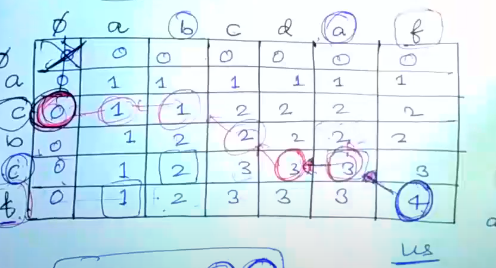 ø a b c d a f
ø 0 0 0 0 0 0
a 0 1 1 1 1 1 1
c 0 1 1 2 2 2 2
b 0 1 2 2 2 2 2
c 0 1 2 3 3 3 3
f 0 1 2 3 3 3 4